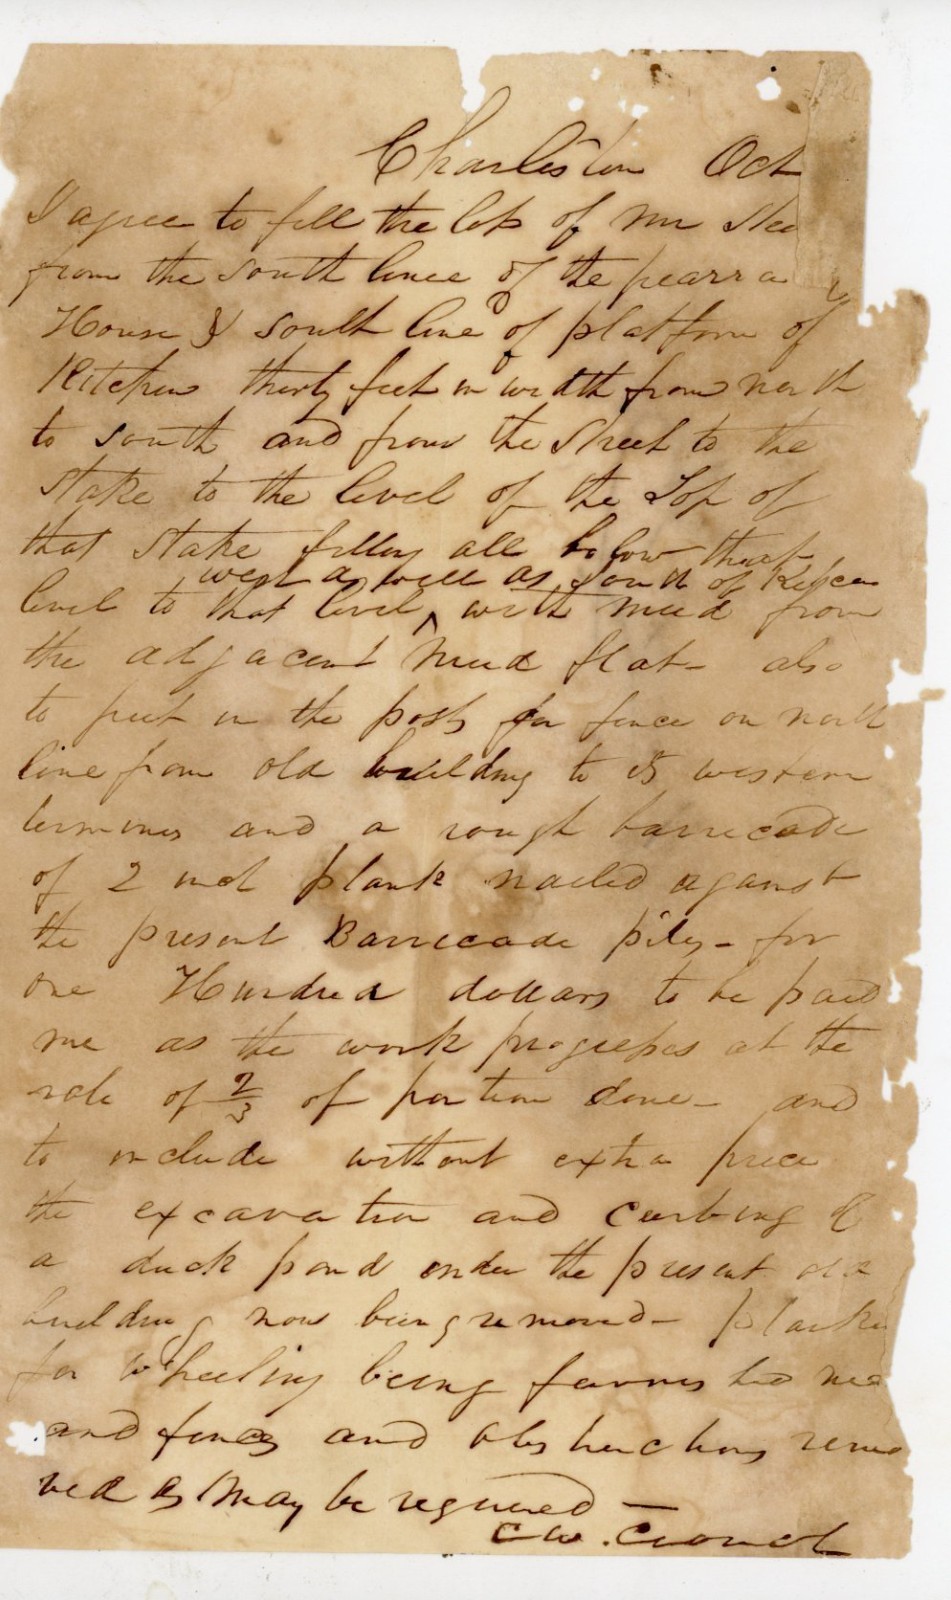 Charleston Oct
I agree to fill the lots of Mr
from the south line of the pearra
House & south line of platform of
Kitchen thirty feet in width from north
to south and from the Street to the
Stake to the level of the Top of
that Stake filling all below that
west as well as south of Kitchen
level to that level ^ with mud from
the adjacent Mud flat - also
to put in the posts for fence on north
line from old building to its western
terminus and a rough barricade
of 2 inch plank nailed against
the present Barricade piles - for
one Hundred dollars to be paid
me as the work progresses at the
rate of 2/3 of portion done - and
to include without extra price
the excavation and curbing of
a duck pond under the present old
building now being removed - planks
for wheeling being furnished me
and fences and obstructions remo
ved as may be required —
C W.